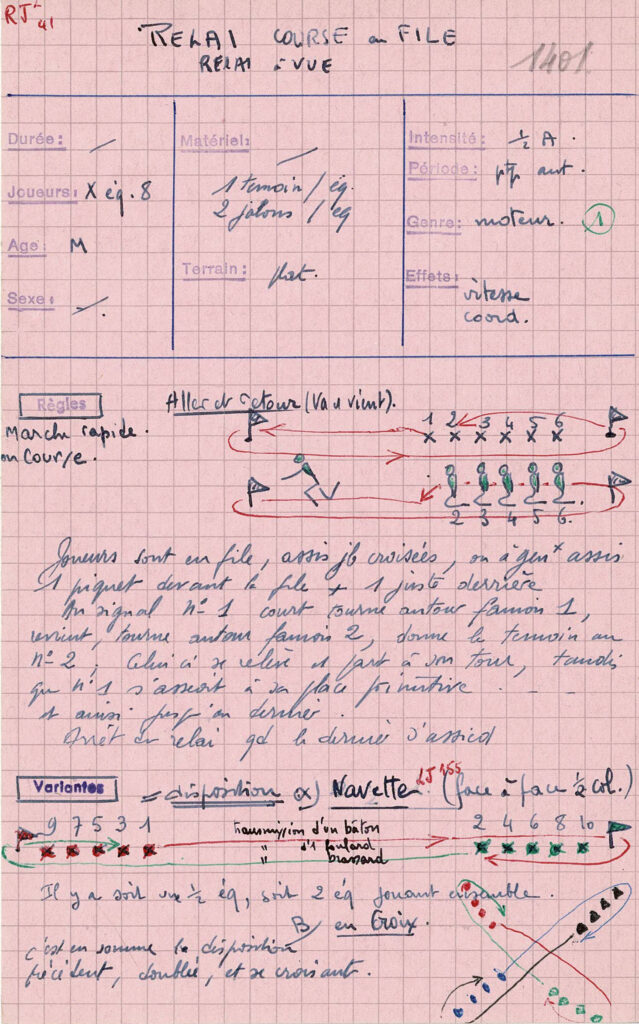 RJ 41
RELAI COURSE en FILE
RELAI à VUE
1401
Durée :
Joueurs : X éq. 8
Age : M
Sexe :
Matériel:
1 temoin / éq.
2 jalons / éq
Terrain : plat.
Intensité : ½ A.
Période : aut.
Genre : moteur. 1
Effets : vitesse
coord.
Règles
Aller et retour (Va et vient).
Marche rapide.
ou Course.
1 2 3 4 5 6
2 3 4 5 6.
Joueurs sont en file, assis jb croisées, ou à genx assis
1 piquet devant la file + 1 juste derrière
Au signal n° 1 court tourne autour fanion 1,
revient, tourne autour fanion 2, donne le temoin au
n° 2 ; Celui ci se relève et part à son tour, tandis
que n° 1 s'asseoit à sa place primitive. _ _
et ainsi jusqu'au dernier.
Arrêt du relai qd le dernier s'assied
Variantes
= disposition α) Navette. (face à face ½ col.)
155
9 7 5 3 1
Transmission d'un bâton
" d'1 foulard
" brassard
2 4 6 8 10
Il y a soit une ½ éq, soit 2 éq jouant ensemble.
B/ en Croix.
c'est en somme la disposition
précédent, doublée, et se croisant.